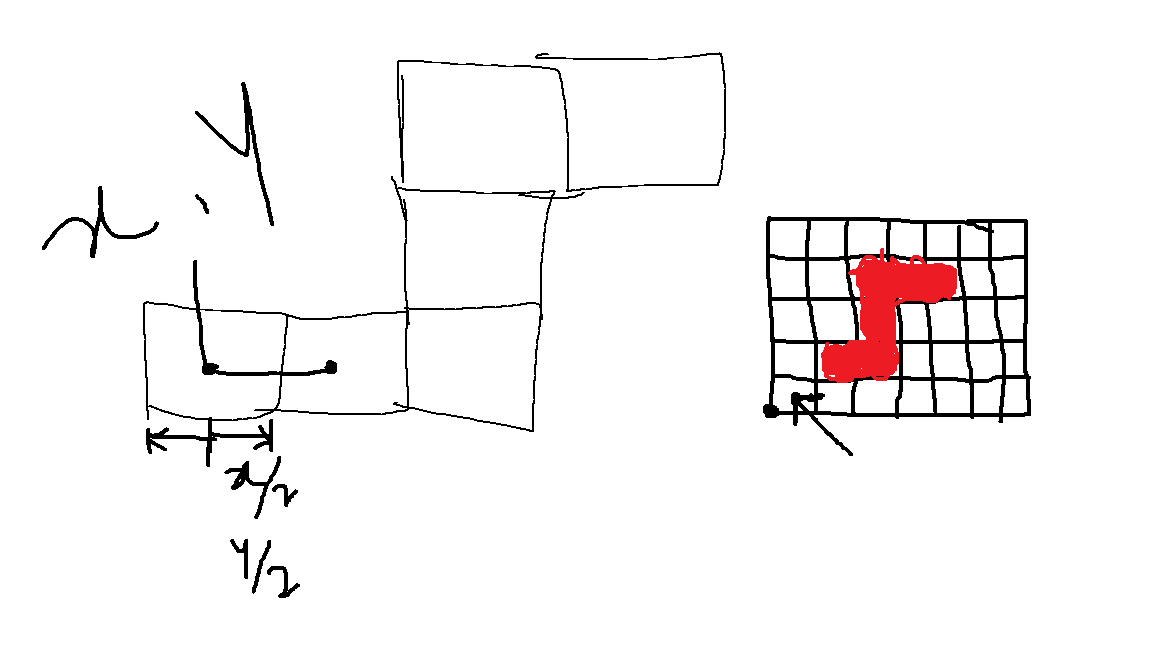 x, y
x/2
y/2